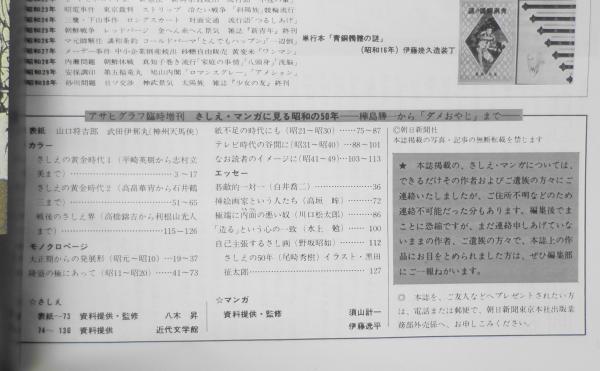 昭電事件 東京裁判 ストリップ 冷たい戦争
三鷹・下山事件 ロングスカート 対面交通 流行語「つるしあげ」
朝鮮戦争 レッドパージ 金へん糸へん景気 雑誌「新青年」終刊
メーデー事件 中小企業倒産続出 「ワンマン」
内灘問題 朝鮮休戦 真知子巻き流行「家庭の事情」「八頭身」
安保調印 第五福竜丸 鳩山内閣「ロマンスグレー」「アメション」
砂川問題 日ソ交渉 神武景気 太陽族 雑誌「少女の友」終刊
単行本「青銅髑髏の謎」
(昭和16年) 伊藤幾久造装丁
アサヒグラフ臨時増刊 さしえ・マンガに見る昭和の50年——樺島勝一から「ダメおやじ」まで
表紙 山口将吉郎 武田伊那丸(神州天馬侠)
カラー
さしえの黄金時代1(平崎英樹から志村立
美まで)……3〜17
さしえの黄金時代2(高畠華宵から石井鶴
三まで)……51〜65
戦後のさしえ界(高橋錦吉から利根山光人
まで)……115〜126
モノクロページ
大正期からの発展形(昭元〜昭10)…19〜37
隆盛の極にあって(昭11〜昭20)……41〜73
紙不足の時代にも(昭21〜昭30)……75〜87
テレビ時代の谷間に(昭31〜昭40)…88〜101
なお読者のイメージに(昭41〜49)…103〜113
エッセー
碁敵的一対一(白井喬二)……36
挿絵画家という人たち(高垣 眸)……72
極端に内面の悪い奴(川口松太郎)……86
「造る」という心の一致(水上 勉)……100
自己主張するさし画(野坂昭如)……112
さしえの50年(尾崎秀樹)イラスト・黒田
征太郎……127
©朝日新聞社
本誌掲載の写真・記事の無断転載を禁じます
★ 本誌掲載の、さしえ・マンガについては、
できるだけその作者およびご遺族の方々にご
連絡いたしましたが、ご住所不明などのため
連絡不可能だった分もあります。編集後でま
ことに恐縮ですが、まだ連絡申しあげていな
いままの作者、ご遺族の方々で、本誌上の作
品にお目をとめられました方は、ぜひ編集部
にご一報ねがいます。
◎ 本誌を、ご友人などへプレゼントされたい方
は、電話または郵便で、朝日新聞東京本社出版業
務部外売係へ、お申しこみください。
☆さしえ
表紙〜73 資料提供・監修 八木 昇
74〜136 資料提供 近代文学館
☆マンガ
資料提供・監修 須山計一
伊藤逸平